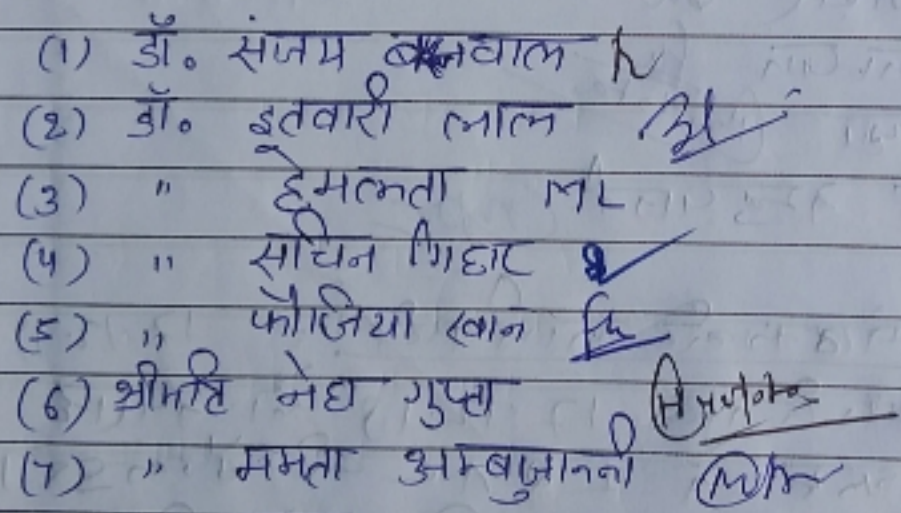 (1) डॉ. संजय बनवाल
(2) डॉ. इतवारी लाल
(3) " हेमलता ML
(4) " सचिन गिहार
(5) " फौजिया खान
(6) श्रीमति नेहा गुप्ता
(7) " ममता